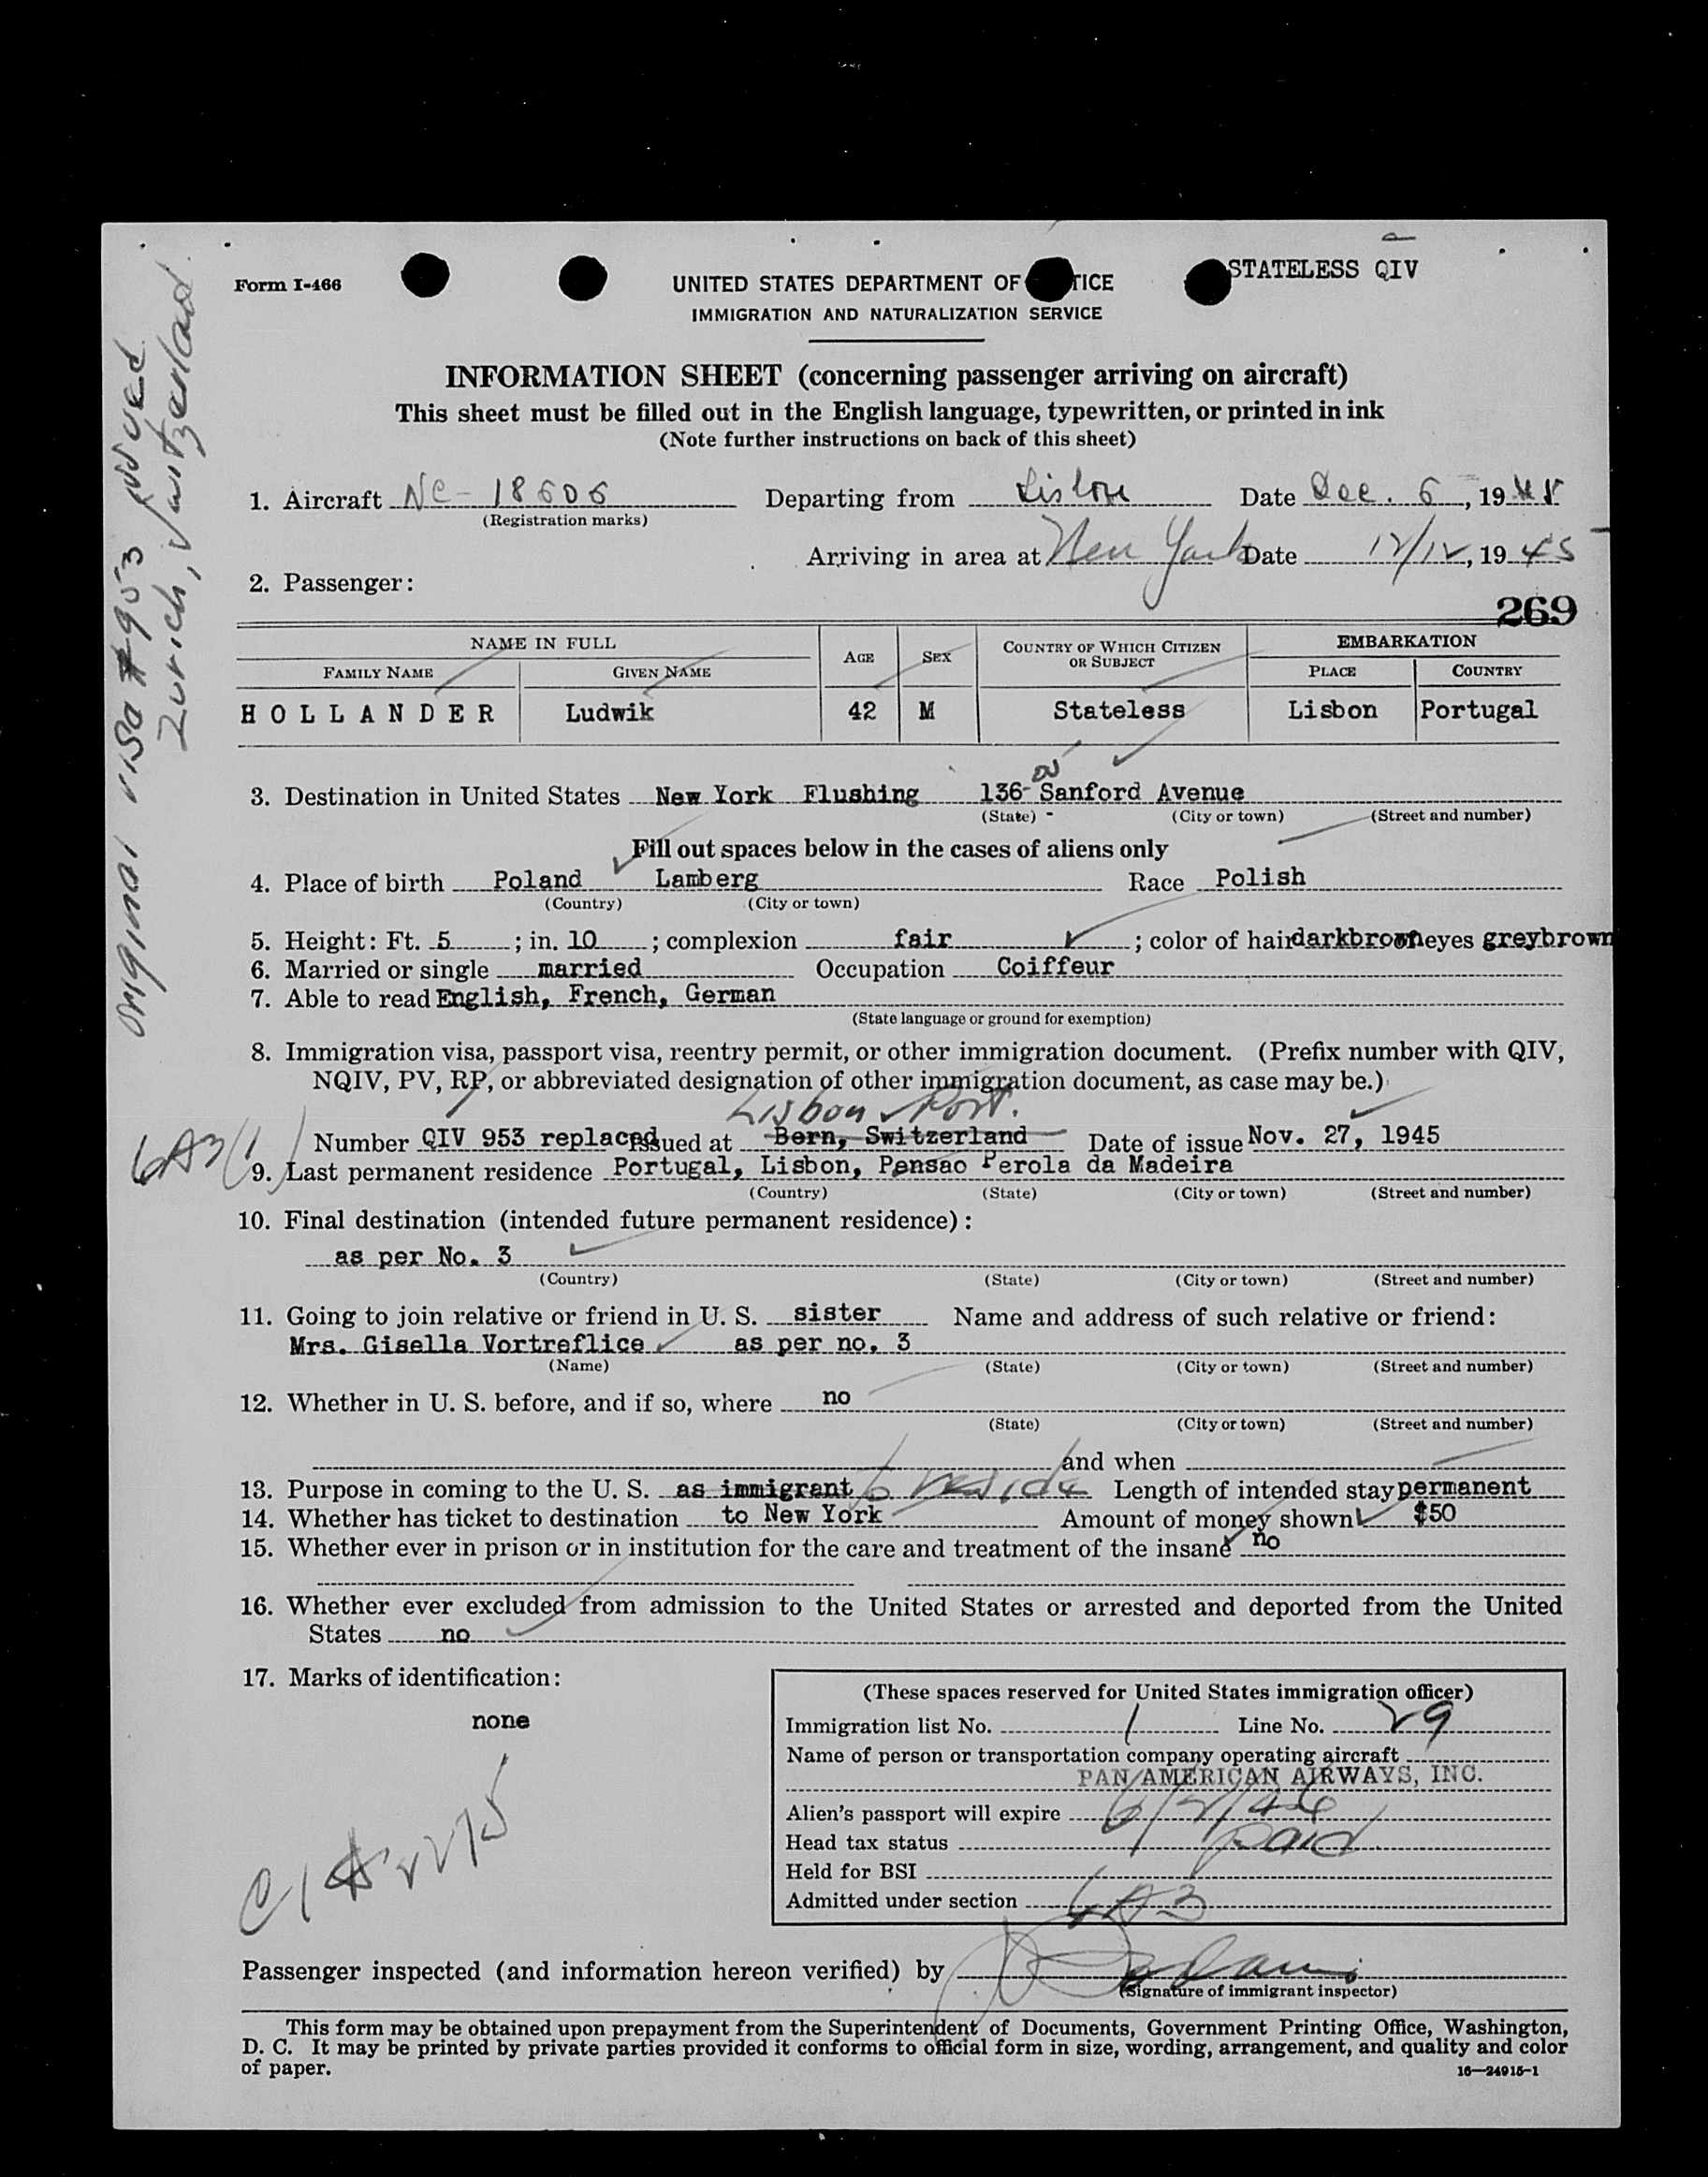 STATELESS QIV
Form I-466
UNITED STATES DEPARTMENT OF TICE
IMMIGRATION AND NATURALIZATION SERVICE
INFORMATION SHEET (concerning passenger arriving on aircraft)
This sheet must be filled out in the English language, typewritten, or printed in ink
(Note further instructions on back of this sheet)
1. Aircraft NC-18606 Departing from Lisbon Date Dec. 6, 1945
(Registration marks)
Arriving in area at New York Date 12/12, 1945
2. Passenger:
269
NAME IN FULL AGE SEX COUNTRY OF WHICH CITIZEN OR SUBJECT EMBARKATION
FAMILY NAME GIVEN NAME PLACE COUNTRY
HOLLANDER Ludwik 42 M Stateless Lisbon Portugal
3. Destination in United States New York Flushing 136- Sanford Avenue
(State) (City or town) (Street and number)
Fill out spaces below in the cases of aliens only
4. Place of birth Poland Lamberg Race Polish
(Country) (City or town)
5. Height: Ft. 5; in. 10; complexion fair; color of hair darkbrown eyes greybrown
6. Married or single married Occupation Coiffeur
7. Able to read English, French, German
(State language or ground for exemption)
8. Immigration visa, passport visa, reentry permit, or other immigration document. (Prefix number with QIV,
NQIV, PV, RP, or abbreviated designation of other immigration document, as case may be.)
Lisbon Port.
Number QIV 953 replaced Issued at Bern, Switzerland Date of issue Nov. 27, 1945
6A3(1)
9. Last permanent residence Portugal, Lisbon, Pensao Perola da Madeira
(Country) (State) (City or town) (Street and number)
10. Final destination (intended future permanent residence):
as per No. 3
(Country) (State) (City or town) (Street and number)
11. Going to join relative or friend in U. S. sister Name and address of such relative or friend:
Mrs. Gisella Vortreflice as per no. 3
(Name) (State) (City or town) (Street and number)
12. Whether in U. S. before, and if so, where no
(State) (City or town) (Street and number)
and when
13. Purpose in coming to the U. S. as immigrant to reside Length of intended stay permanent
14. Whether has ticket to destination to New York Amount of money shown $50
15. Whether ever in prison or in institution for the care and treatment of the insane no
16. Whether ever excluded from admission to the United States or arrested and deported from the United
States no
17. Marks of identification:
none
(These spaces reserved for United States immigration officer)
Immigration list No. 1 Line No. 29
Name of person or transportation company operating aircraft
PAN AMERICAN AIRWAYS, INC.
Alien's passport will expire 6/2/46
Head tax status paid
Held for BSI
Admitted under section 6A3
Passenger inspected (and information hereon verified) by
(Signature of immigrant inspector)
This form may be obtained upon prepayment from the Superintendent of Documents, Government Printing Office, Washington,
D. C. It may be printed by private parties provided it conforms to official form in size, wording, arrangement, and quality and color
of paper.
16—24915-1
Original visa #953 issued
Zurich, Switzerland.